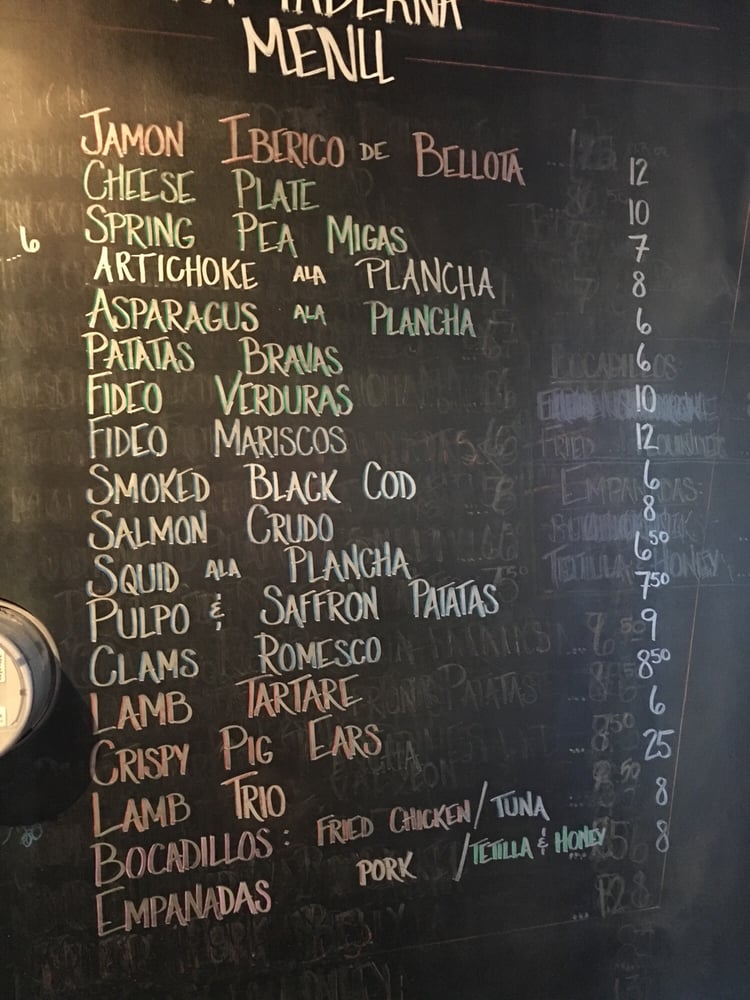 TABERNA
MENU
JAMON IBERICO DE BELLOTA ... 12
CHEESE PLATE 10
SPRING PEA MIGAS 7
6
ARTICHOKE ALA PLANCHA 8
ASPARAGUS ALA PLANCHA 6
PATATAS BRAVAS 6
FIDEO VERDURAS 10
FIDEO MARISCOS 12
SMOKED BLACK COD 6
SALMON CRUDO 8
SQUID ALA PLANCHA 6 50
PULPO & SAFFRON PATATAS 7 50
CLAMS ROMESCO 9
LAMB TARTARE 8 50
CRISPY PIG EARS 6
LAMB TRIO 25
BOCADILLOS: FRIED CHICKEN / TUNA 8
PORK / TETILLA & HONEY
EMPANADAS 8